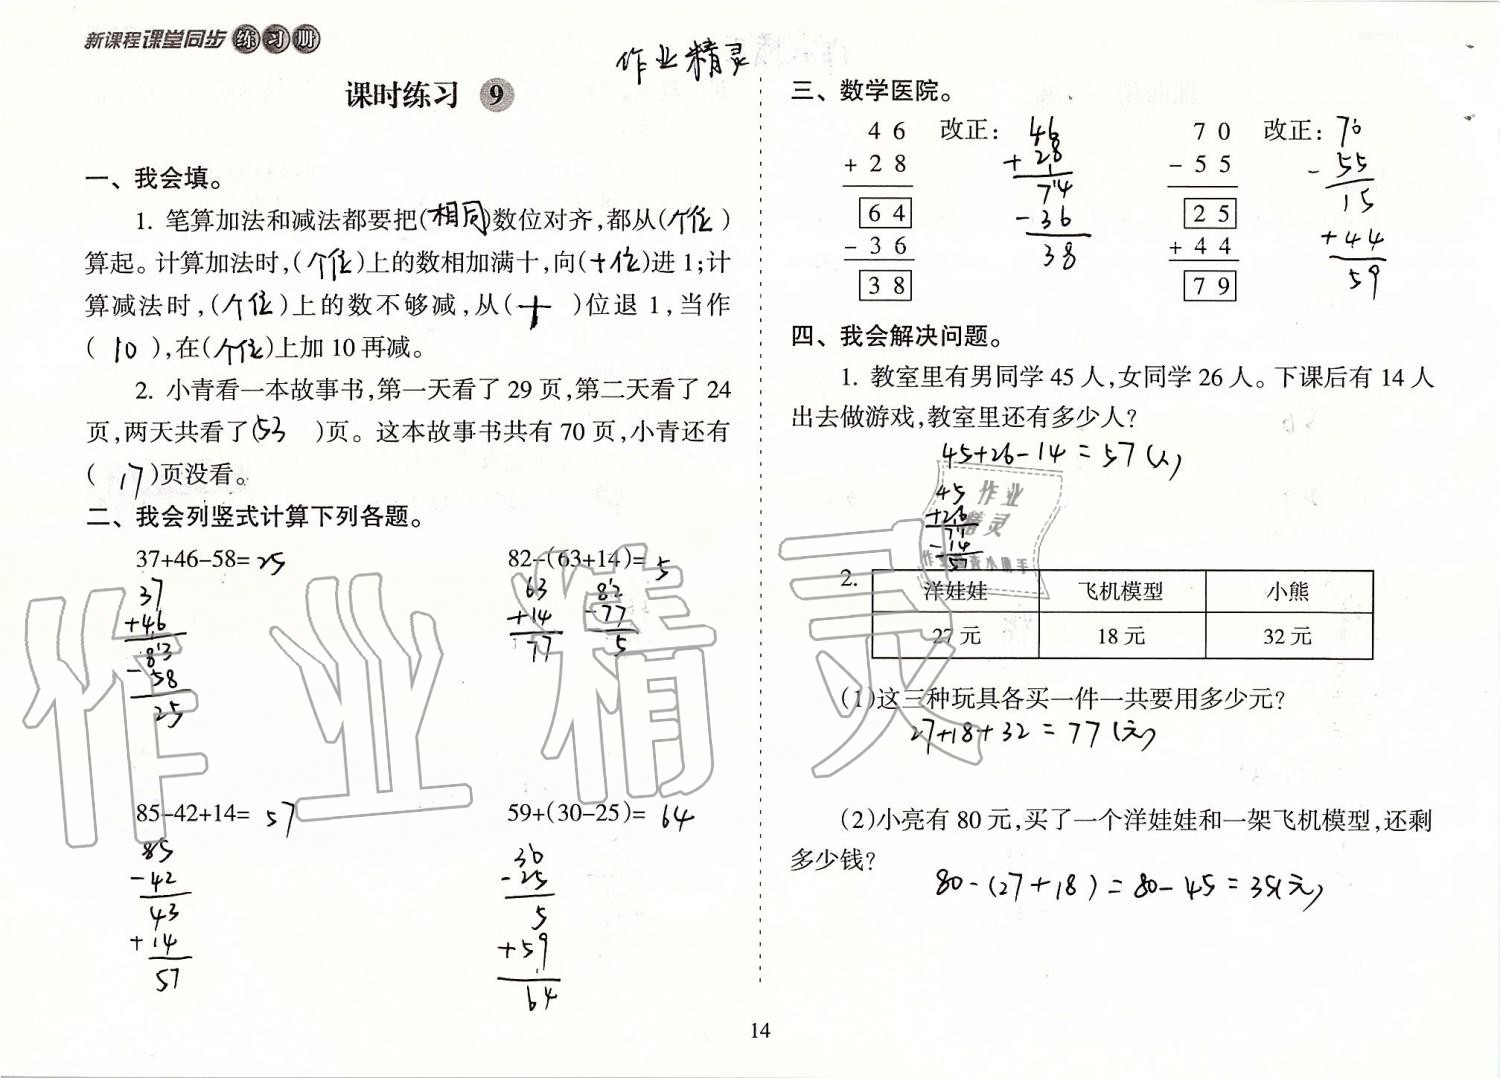 新课程课堂同步练习册
作业精灵
课时练习 9
一、我会填。
1. 笔算加法和减法都要把(相同)数位对齐,都从(个位)
算起。计算加法时,(个位)上的数相加满十,向(十位)进1;计
算减法时,(个位)上的数不够减,从(十)位退1,当作
(10),在(个位)上加10再减。
2. 小青看一本故事书,第一天看了29页,第二天看了24
页,两天共看了(53)页。这本故事书共有70页,小青还有
(17)页没看。
二、我会列竖式计算下列各题。
37+46-58=25
37
+46
83
-58
25
82-(63+14)=5
63
+14
77
82
-77
5
85-42+14=57
85
-42
43
+14
57
59+(30-25)=64
30
-25
5
+59
64
三、数学医院。
46
+28
64
-36
38
改正:
46
+28
74
-36
38
70
-55
25
+44
79
改正:
70
-55
15
+44
59
四、我会解决问题。
1. 教室里有男同学45人,女同学26人。下课后有14人
出去做游戏,教室里还有多少人?
45+26-14=57(人)
45
+26
71
-14
57
2.
洋娃娃 飞机模型 小熊
27元 18元 32元
(1)这三种玩具各买一件一共要用多少元?
27+18+32=77(元)
(2)小亮有80元,买了一个洋娃娃和一架飞机模型,还剩
多少钱?
80-(27+18)=80-45=35(元)
14
作业精灵
作业
精灵